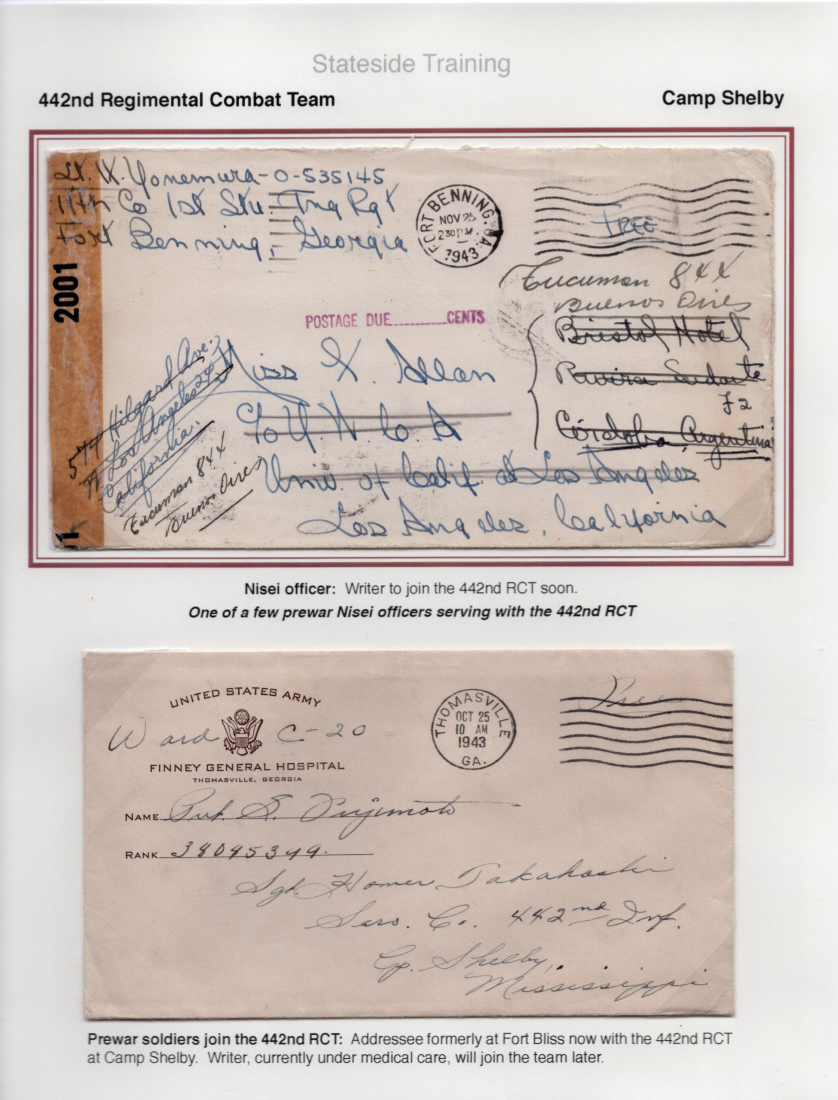 Stateside Training
442nd Regimental Combat Team
Camp Shelby
Lt. K. Yonemura-O-535145
11th Co 1st Stu. Tng Rgt
Fort Benning, Georgia
FORT BENNING, GA.
NOV 25
2 30 PM
1943
FREE
2001
POSTAGE DUE CENTS
Tucuman 844
Buenos Aires
Bristol Hotel
72
Córdoba, Argentina
Miss K. Allan
c/o Y.W.C.A
Univ. of Calif. at Los Angeles
Los Angeles, California
574 Hilgard Ave.
Los Angeles 24
California
Tucuman 844
Buenos Aires
Nisei officer: Writer to join the 442nd RCT soon.
One of a few prewar Nisei officers serving with the 442nd RCT
UNITED STATES ARMY
Ward C-20
FINNEY GENERAL HOSPITAL
THOMASVILLE, GEORGIA
THOMASVILLE
OCT 25
10 AM
1943
GA.
Free
NAME Pvt. S. Fujimoto
RANK 38095399
Sgt. Homer Takahashi
Serv. Co. 442nd Inf.
Cp. Shelby,
Mississippi
Prewar soldiers join the 442nd RCT: Addressee formerly at Fort Bliss now with the 442nd RCT
at Camp Shelby. Writer, currently under medical care, will join the team later.